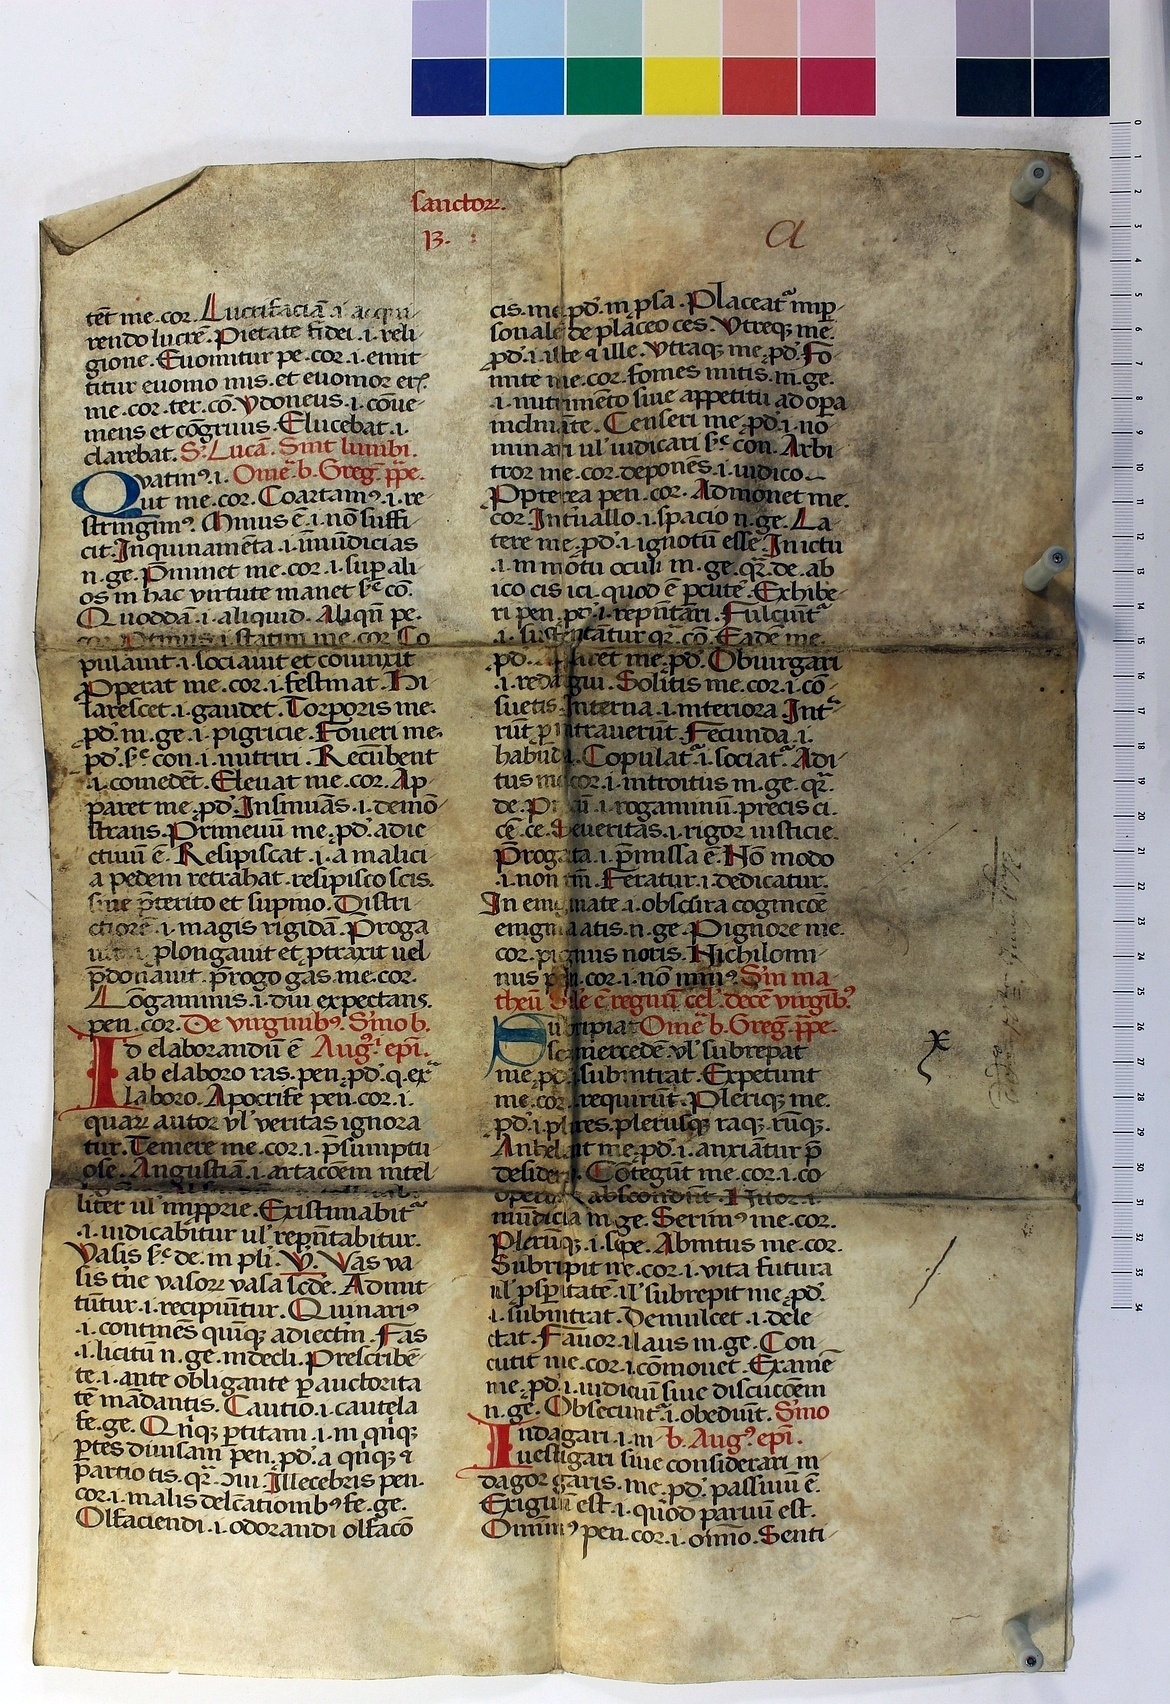 sanctoꝝ.
B. :
a
tēt me.cor. Lucrifaciā .i. acqui-
rendo lucrē. Pietate fidei .i. reli-
gione. Euomitur pe. cor .i. emit
titur euomo mis. et euomor
me. cor. ter. cō. Ydoneus .i. cōue-
niens et cōgruus. Elucebat .i.
clarebat. S. Lucā. Sint lumbi.
Quatinꝰ .i. Omeᷓ b. Greg. pp̄e.
ut me. cor. Coartamꝰ .i. re
stringimꝰ. Minus ē .i. nō suffi
cit. Inquinamēta .i. īmūdicias
n. ge. P̄minet me. cor .i. sup ali-
os in hac virtute manet sᶜ cō.
Quoddā .i. aliquid. Aliqn̄ pe.
cor. Ptinus .i. statim me. cor. Co
pulauit .i. sociauit et coniunxit
Properat me. cor .i. festinat. Hi
larescet .i. gaudet. Torporis me.
pd. m. ge .i. pigricie. Foueri me.
pd. sᶜ con .i. nutriri. Recūbent
.i. comedēt. Eleuat me. cor. Ap-
paret me. pd. Insinuās .i. demō
strans. Primeuū me. pd. adie
ctiuū ē. Resipiscat .i. a malici
a pedem retrahat. resipisco scis.
siue p̄terito et supino. Distri-
ctiorē .i. magis rigidā. Proga
plongauit et ptraxit uel
pdonauit. prrogo gas. me. cor.
Lōgaminus .i. diu expectans.
pen. cor. De virginibꝰ. Smo b.
Id elaborandū ē Augꝰ. epi.
ab elaboro ras. pen. pd. q. exᷓ
laboro. Apocrife pen. cor .i.
quaꝝ autor vl' veritas ignora
tur. Temere me. cor .i. p̄sumptu
ose. Angustiā .i. artacōem intel-
liter ul' impprie. Existimabitᷓ
.i. iudicabitur ul' repn̄tabitur.
Vasis sᶜ de. in pli. V. Vas va
sis tn̄e vasoꝝ vasa scde. Admit
tūtur .i. recipiūtur. Quinariꝰ
.i. continēs quīqꝫ adiectm̄. Fas
.i. licitū n. ge. indecli. Prescribē-
te .i. ante obligante p auctorita
tē mādantis. Cautio .i. cautela
fe. ge. Qn̄qꝫ ptitam .i. in qn̄qꝫ
ptes diuisam pen. pd. a qn̄qꝫ ⁊
partio tis. qr̄. Illecebris pen.
cor .i. malis delcationibꝰ fe. ge.
Olfaciendi .i. odorandi olfaco
cis. me. pd. in psa. Placeatᷓ imp-
sonale de placeo ces. Vtreqꝫ me.
pd. i. iste ⁊ ille. Vtraqꝫ me. pd. Fo
mite me. cor. fomes mitis. m. ge.
.i. nutrimēto siue appetitu ad opa
inclināte. Censeri me. pd .i. no
minari ul' iudicari sᶜ con. Arbi-
tror me. cor. deponēs .i. iudico.
Propterea pen. cor. Admonet me.
cor. Intuallo .i. spacio n. ge. La-
tere me. pd .i. ignotū esse. In ictu
.i. in mōtu oculi m. ge. qr̄. de. ab
ico cis ici. quod ē pcute. Exhibe-
ri pen. pd .i. repn̄tari. Fulciuntᷓ
.i. sustentatur qr̄. cō. Eadē me.
pd. . Obiurgari
.i. redargui. Solitis me. cor .i. cō
suetis. Interna .i. interiora Int-
rūt p intrauerūt. Fecunda .i.
habūda. Copulatᷓ .i. sociatᷓ. Adi-
tus me. cor .i. introitus m. ge. qr̄.
de. .i. rogaminū. precis ci.
cē. ce. Seueritas .i. rigor iusticie.
Progata .i. p̄missa ē. Nō modo
.i. non tm̄. Feratur .i. dedicatur.
In enigmate .i. obscura cognicōe
enigmatis. n. ge. Pignore me.
cor. pignus noris. Nichilomi-
nus pen. cor .i. nō minꝰ. Sm ma
theū Sile ē regnū cel. decē virgibꝰ.
Subripiat Omeᷓ b. Greg. pp̄e.
mercedē. vl' subrepat
me. pd. i. subintrat. Expetunt
me. cor .i. requirūt. Plerique me.
pd. i. plures. plerusqꝫ raqꝫ. rūqꝫ.
Anhelant me. pd .i. anxiātur p̄
desiderio. Cōtegūt me. cor .i. co
operiūt abscondūt. .i.
mūdicia m. ge. Serimꝰ me. cor.
Plerūqꝫ .i. sepe. Abintus me. cor.
Subripit me. cor .i. vita futura
ul' pspitatē. ul' subrepit me. pd.
.i. subintrat. Demulcet .i. dele
ctat. Fauor .i. laus m. ge. Con
cutit me. cor .i. cōmouet. Examē
me. pd. i. iudiciū siue discucōem
n. ge. Obsecuntᷓ .i. obediūt. Smo
Indagari .i. in b. Augꝰ. epi.
uestigari siue considerari in
dagor garis. me. pd. passiuū ē.
Exiguū est .i. quod paruū est.
Ominꝰ pen. cor .i. omo. Senti-
x